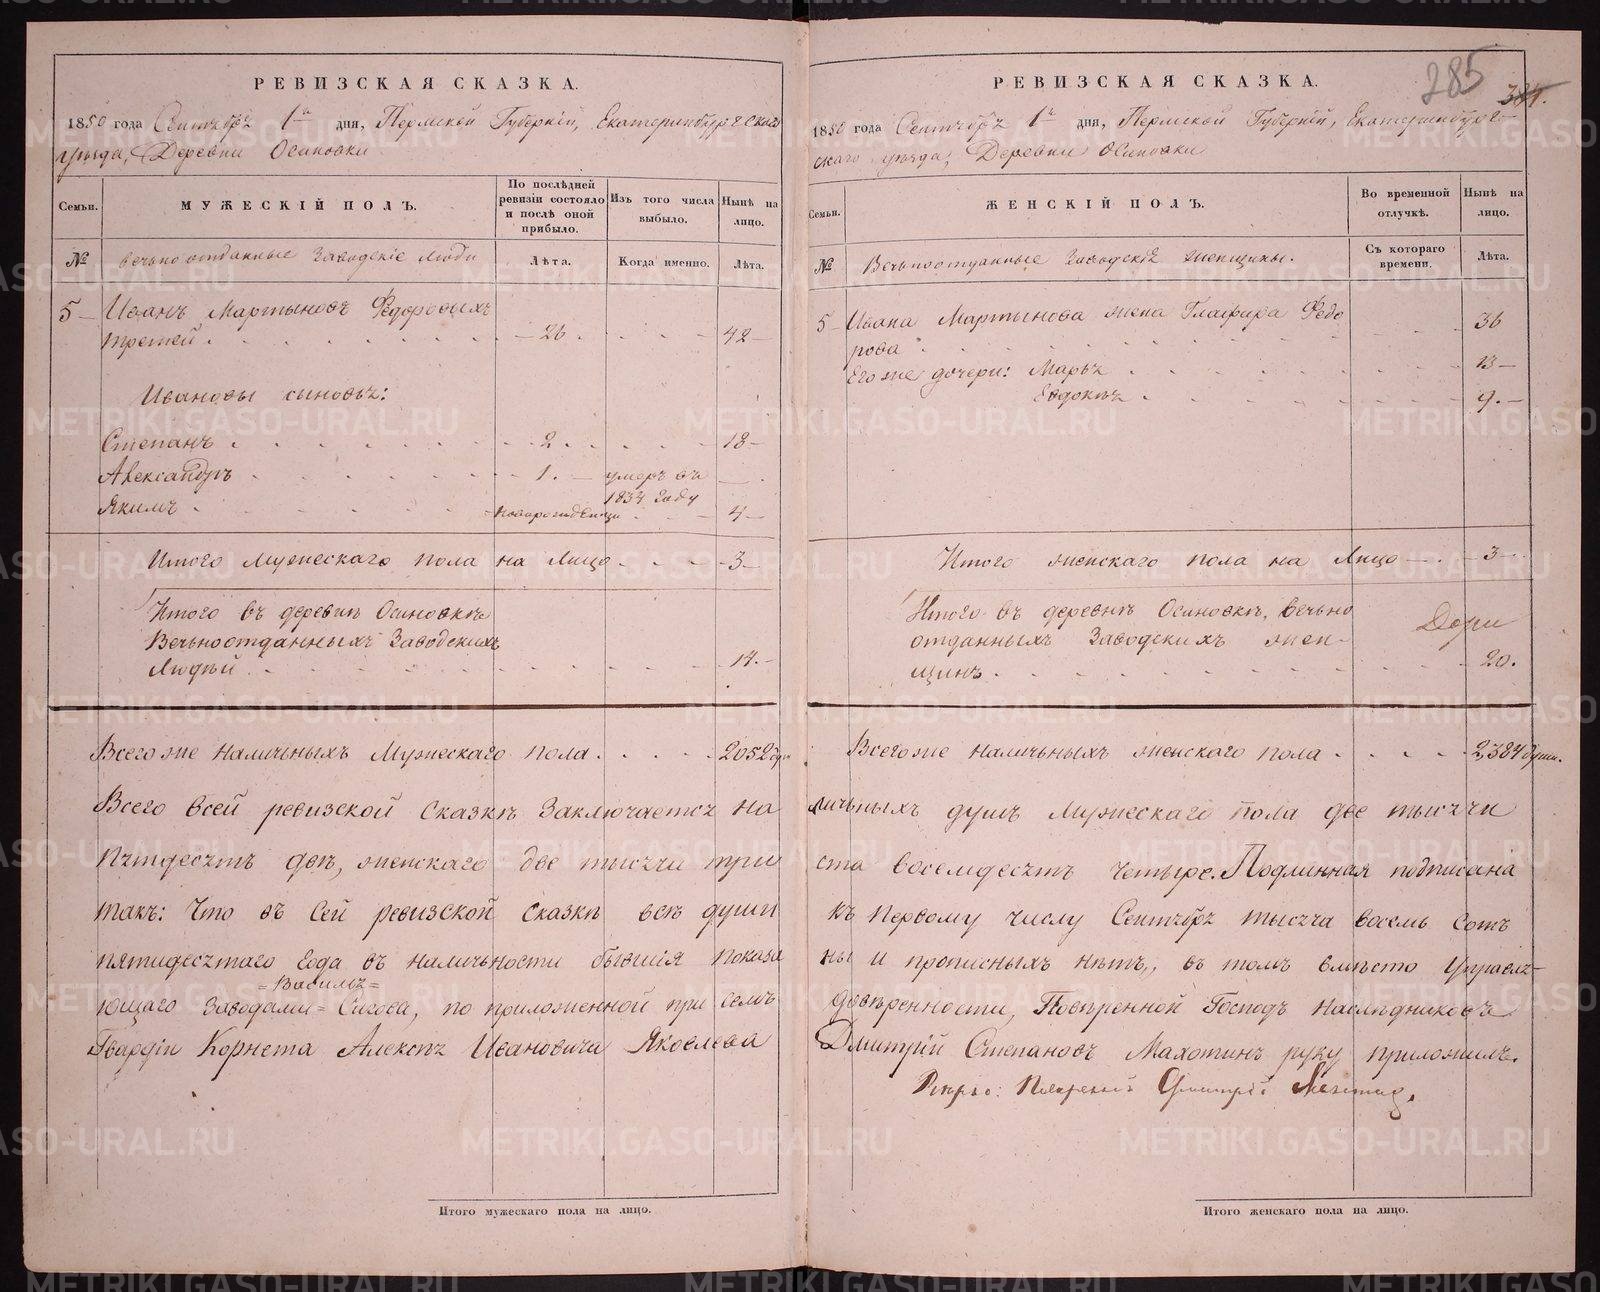 РЕВИЗСКАЯ СКАЗКА.
1850 года Сентября 1го дня, Пермской Губернiи, Екатеринбургскаго
уѣзда, Деревни Осиновки
Семьи.
МУЖЕСКIЙ ПОЛЪ.
По послѣдней
ревизiи состояло
и послѣ оной
прибыло.
Изъ того числа
выбыло.
Нынѣ на
лицо.
№
вечьноотданные Заводскiе Люди
Лѣта.
Когда именно.
Лѣта.
5 Иванъ Мартыновъ Ѳедоровыхъ
третей 26 42
Ивановы сыновья:
Степанъ 2 18
Александръ 1. умеръ въ
1834 году
Якимъ новорожденный 4
Итого мужескаго пола на Лицо 3
Итого въ деревнѣ Осиновкѣ
Вечьноотданныхъ Заводскихъ
Людѣй 14.
Всегоже Наличьныхъ Мужескаго пола 2052 ду
Всего Всей ревизской Сказкѣ Заключается на
пятдесятъ двѣ, женскаго две тысячи три
такъ: Что въ Сей ревизской Сказкѣ всѣ души
пятидесятаго Года въ наличьности бывшiя показа
=Василья=
ющаго Заводами= Сигова, по приложенной при семъ
Гвардiи Корнета Алексѣя Ивановича Яковлева
Итого мужескаго пола на лицо.
РЕВИЗСКАЯ СКАЗКА.
285
1850 года Сентября 1го дня, Пермской Губернiй, Екатеринбург-
скаго уѣзда, Деревни Осиновки
Семьи.
ЖЕНСКIЙ ПОЛЪ.
Во временной
отлучкѣ.
Нынѣ на
лицо.
№
Вечьноотданные Заводскiя женщины.
Съ котораго
времени.
Лѣта.
5 Ивана Мартынова жена Глафира Ѳедо
рова 36
Егоже дочери: Марья 13
Евдокѣя 9.
Итого женскаго пола на Лицо 3
Итого въ деревнѣ Осиновкѣ, вечьно
отданныхъ Заводскихъ жен-
щинъ 20.
Всегоже наличьныхъ женскаго пола 2,384 души.
личьныхъ душъ Мужескаго пола две тысячи
ста восемдесятъ четыре. Подлинная подписана
къ Первому числу Сентября тысяча восемь сотъ
ны и прописныхъ нѣтъ,, въ томъ вмѣсто Управля-
довѣренности, Повѣренной Господъ Наслѣдниковъ
Дмитрiй Степановъ Махотинъ руку приложилъ.
METRIKI.GASO-URAL.RU